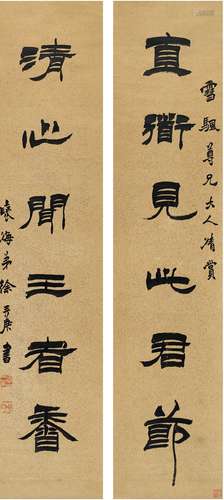 直節見此君節
雪颿尊兄大人清賞
清心聞王者香
袖海弟徐三庚書